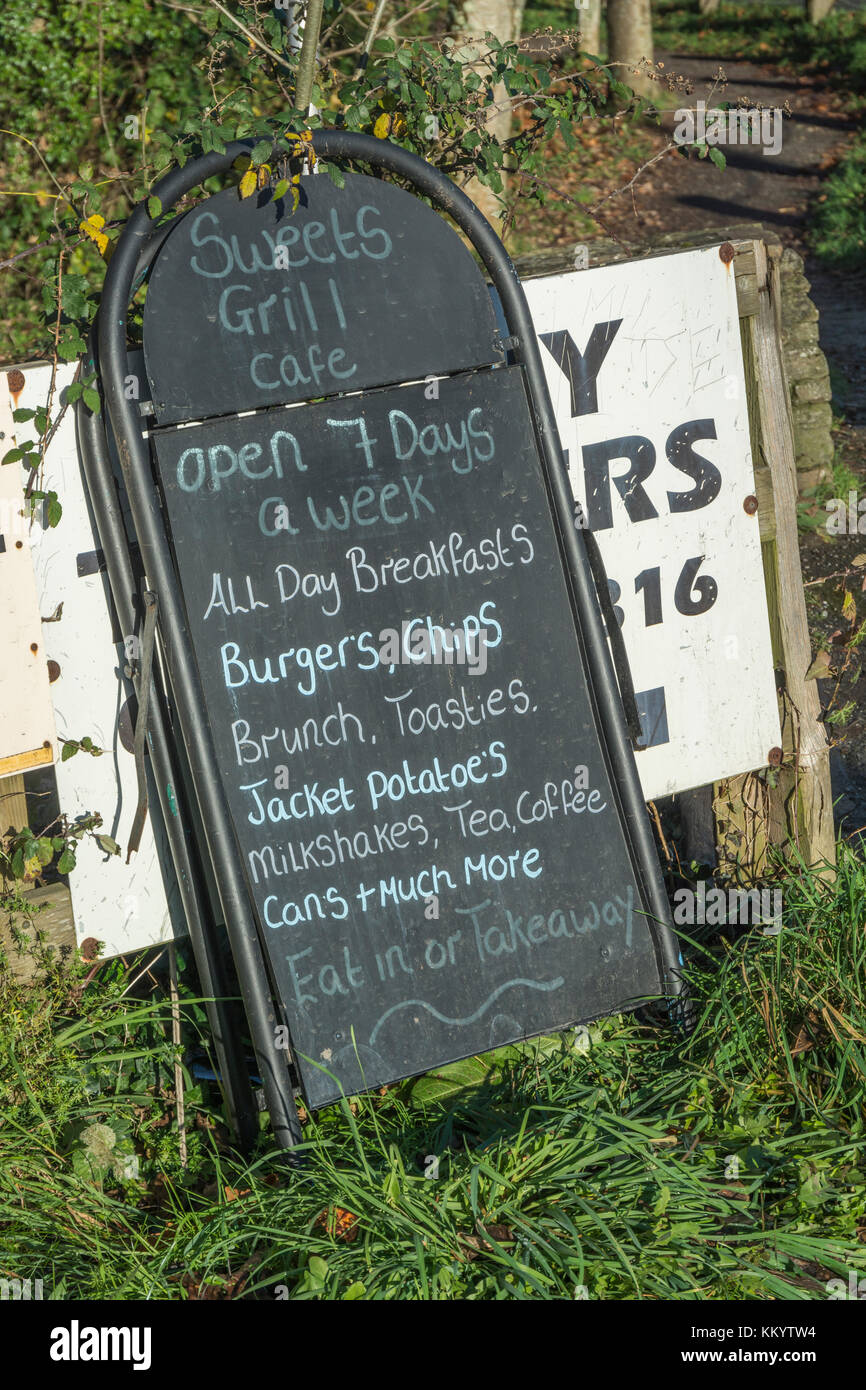 Sweets
Grill
Cafe
open 7 Days
a week
All Day Breakfasts
Burger's, Chips
Brunch, Toasties.
Jacket Potatoe's
Milkshakes, Tea, Coffee
Cans + Much More
Eat in or Takeaway
Y
ERS
316
alamy stock photo
KKYTW4
www.alamy.com